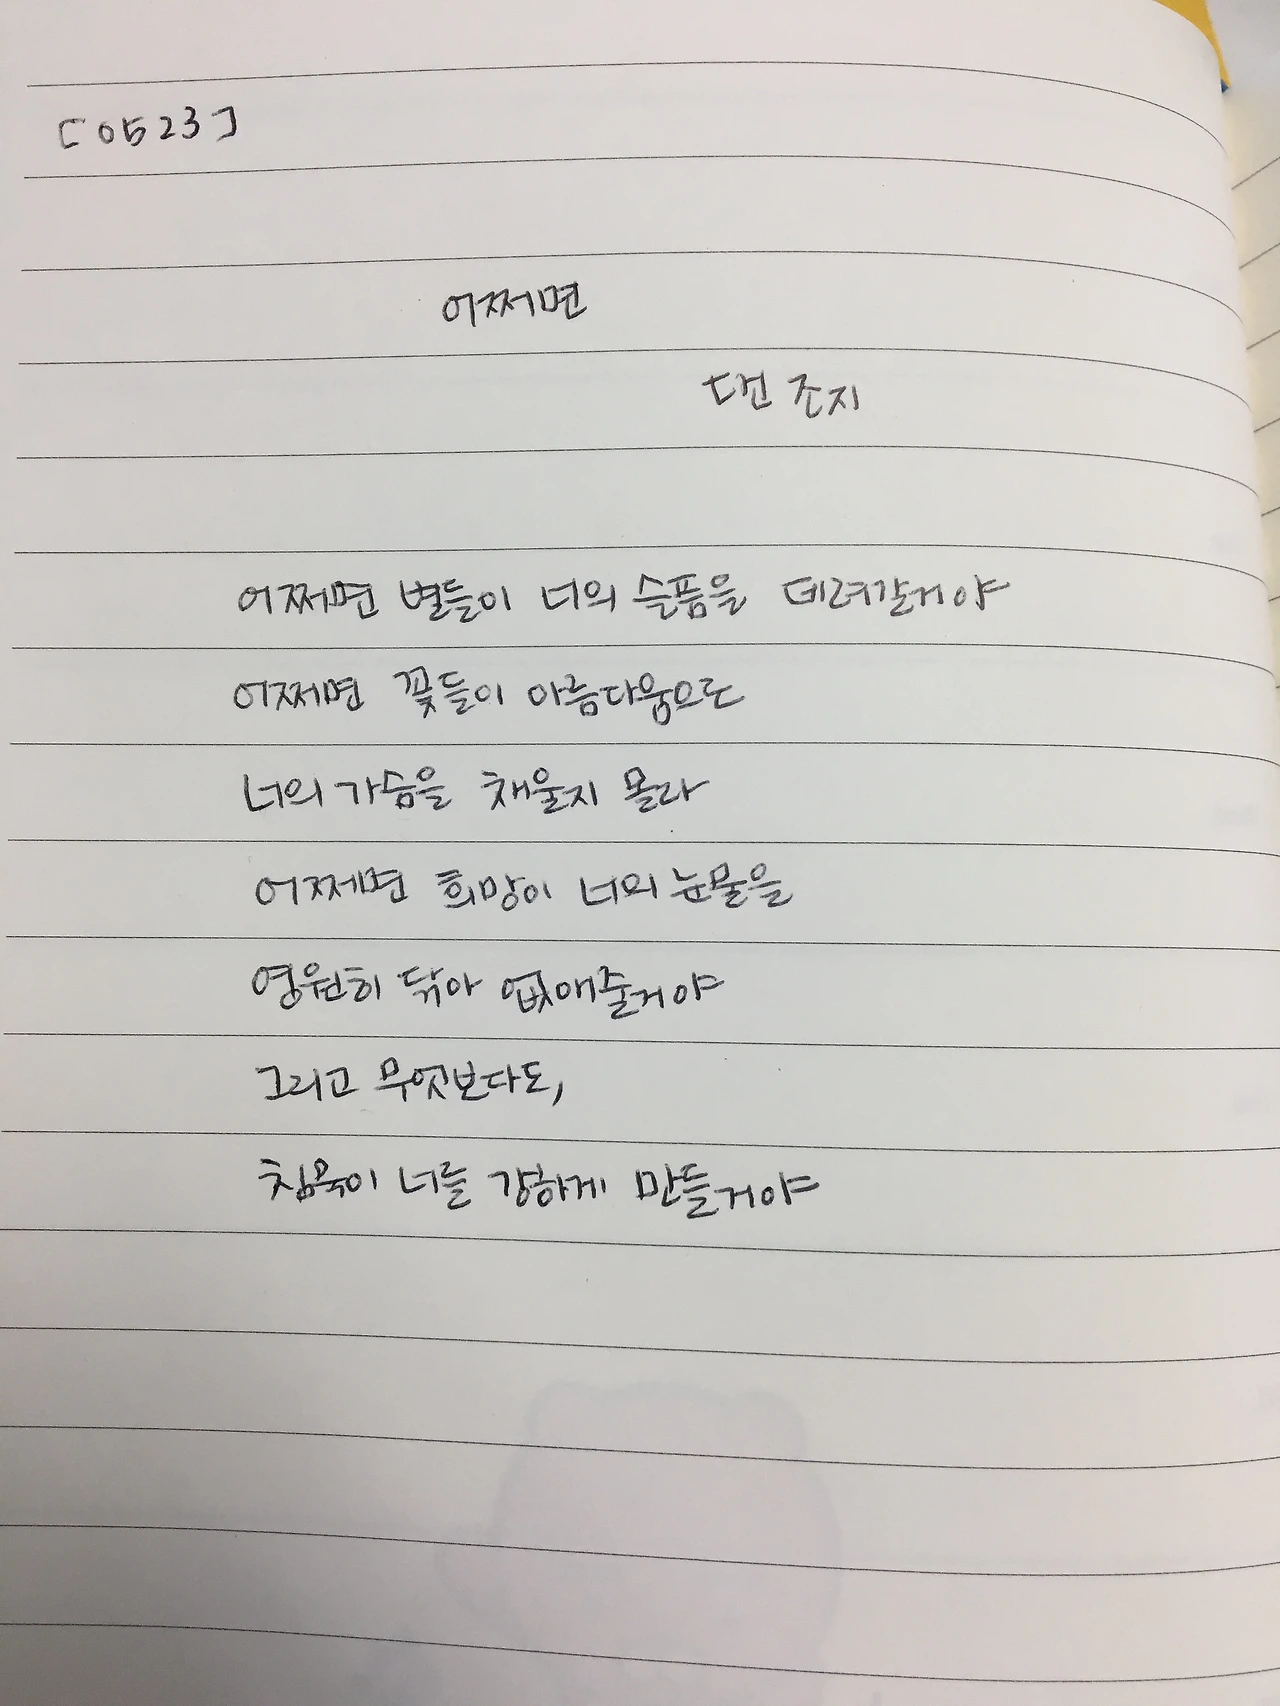 [0523]
어쩌면
댄 조지
어쩌면 별들이 너의 슬픔을 데려갈거야
어쩌면 꽃들이 아름다움으로
너의 가슴을 채울지 몰라
어쩌면 희망이 너의 눈물을
영원히 닦아 없애줄거야
그리고 무엇보다도,
침묵이 너를 강하게 만들거야